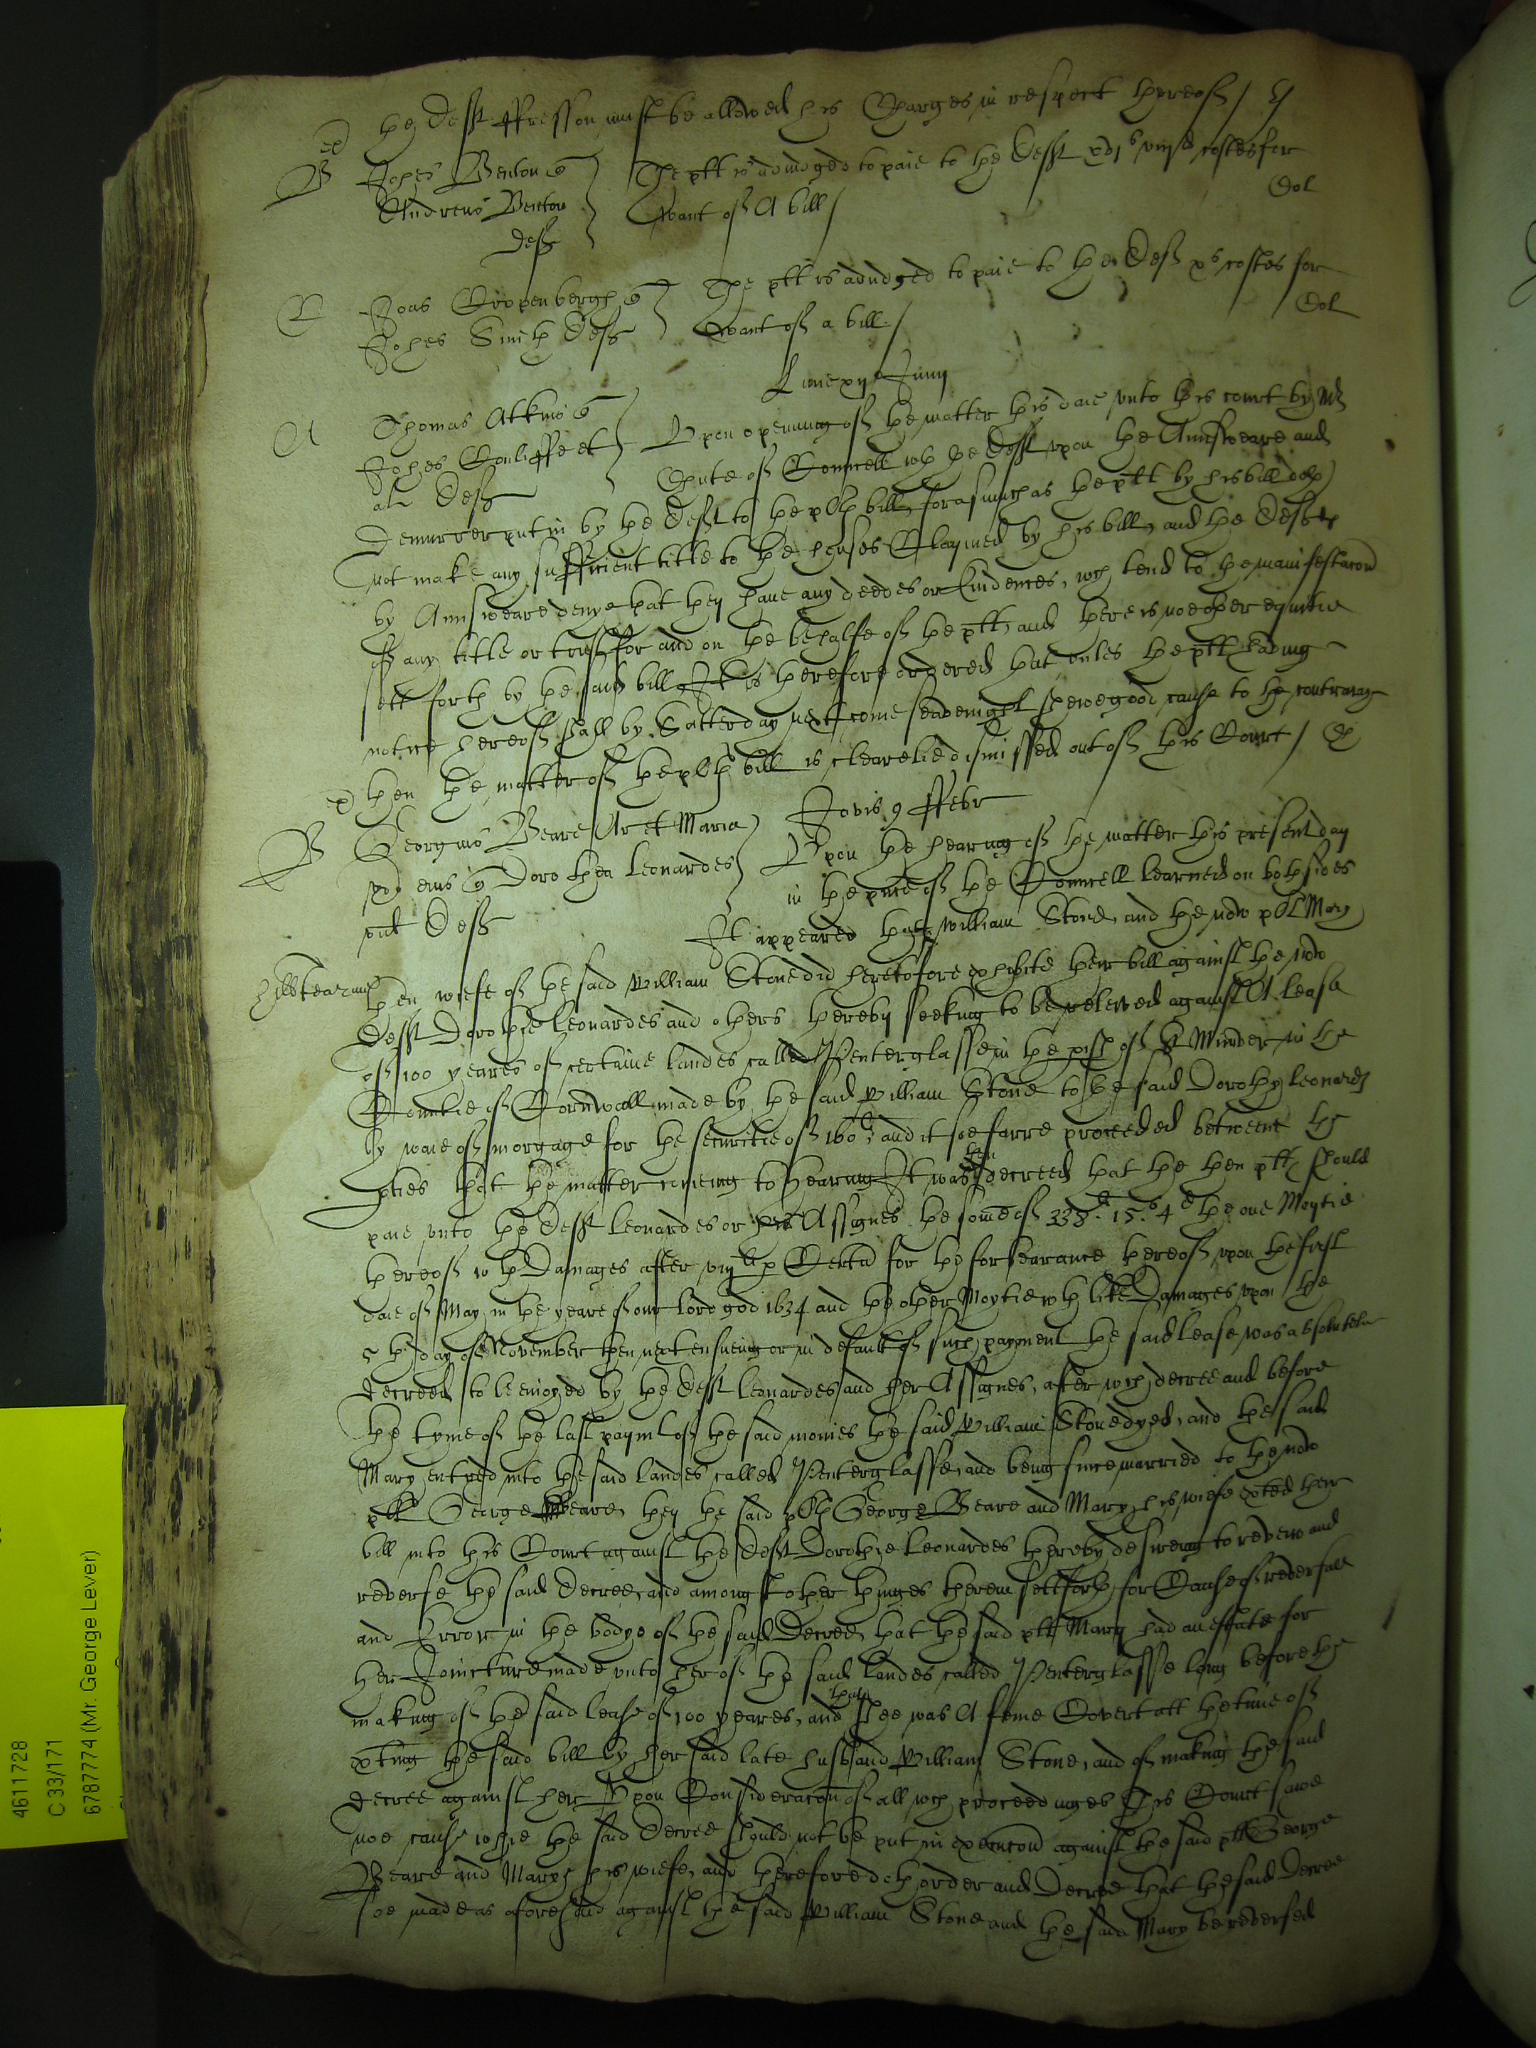 the Deft ffresson must be allowed his Charges in respect thereof /
B Johes Benton
Andreas Benton
deft
The plt is adiudged to paie to the Deft costes for
want of A bill /
Johes Smith Deft
The plt is adiudged to paie to the Deft xs costes for
want of a bill /
Lune xij Junij
A Thomas Atkins
Johes Cunliffe et
al Deft
Upon opening of the matter this daie unto this court by Mr
Chute of Councell wth the Deft upon the Aunsweare and
Demurrer put in by the Deft to the plts bill, forasmuch as the plt by his bill doth
not make any sufficient title to the houses Claymed by his bill, and the Defts
by Aunsweare denye that they have any deedes or Evidences, wch tend to the manifestacon
of any title or trust for and on the behalfe of the plt, and there is noe other equitie
sett forth by the said bill, It is therefore ordered that unles the plt having
notice hereof shall by Satterday next come seavenight shewe good cause to the contrarye
then the matter of the plts bill is clearelie dismissed out of this Court /
Jovis 9 ffebr
B Georgius Beare Ar et Maria
ux eius Dorothea Leonardes
vid Deft
Upon the hearing of the matter this present day
in the pnce of the Councell learned on both sides
It appeared that William Stone, and the now plt Mary
then wiefe of the said William Stone did heretofore exhibite their bill against the now
Deft Dorothie Leonardes and others thereby seeking to be releived against A lease
of 100 yeares of certaine landes called Penterglasse in the pish of St Minver in the
Countie of Cornwall made by the said William Stone to the said Dorothy Leonards
by waie of morgage for the securitie of 160li and it soe farre proceeded betweene the
pties that the matter comeing to hearing It was then decreed that the then plts should
paie unto the Deft Leonardes or her Assignes the some of 338li 15s 4d the one Moytie
thereof wth Damages after viijli p Centu for the forbearance thereof upon the first
daie of May in the yeare of our lord god 1634 and the other Moytie wth like Damages upon the
5th day of November then next ensueing or in default of such payment the said lease was absolutelie
decreed to be enioyed by the Deft Leonardes and her Assignes, after wch decree and before
the tyme of the last paymt of the said monies the said William Stone dyed, and the said
Mary entred into the said landes called Penterglasse, and being since married to the now
plt George Beare, they the said plts George Beare and Mary his wiefe exted their
bill into this Court against the Deft Dorothie Leonardes thereby desireing to review and
reverse the said decree, and amongst other thinges therein sett forth, for Cause of reversall
and Error in the bodye of the said Decree, that the said plt Mary had an estate for
her Joincture made unto her of the said landes called Penterglasse long before the
making of the said lease of 100 yeares, and that shee was A feme Covert att the time of
exting the said bill by her said late husband William Stone, and of making the said
decree against her, Upon Consideracon of all wch proceedinges This Court sawe
noe cause whie the said decree should not be put in execucon against the said plt George
Beare and Mary his wiefe, and therefore doth order and Decree that the said Decree
soe made as aforesaid against the said William Stone and the said Mary be reversed
4611728
C 33/171
6787774 (Mr. George Lever)